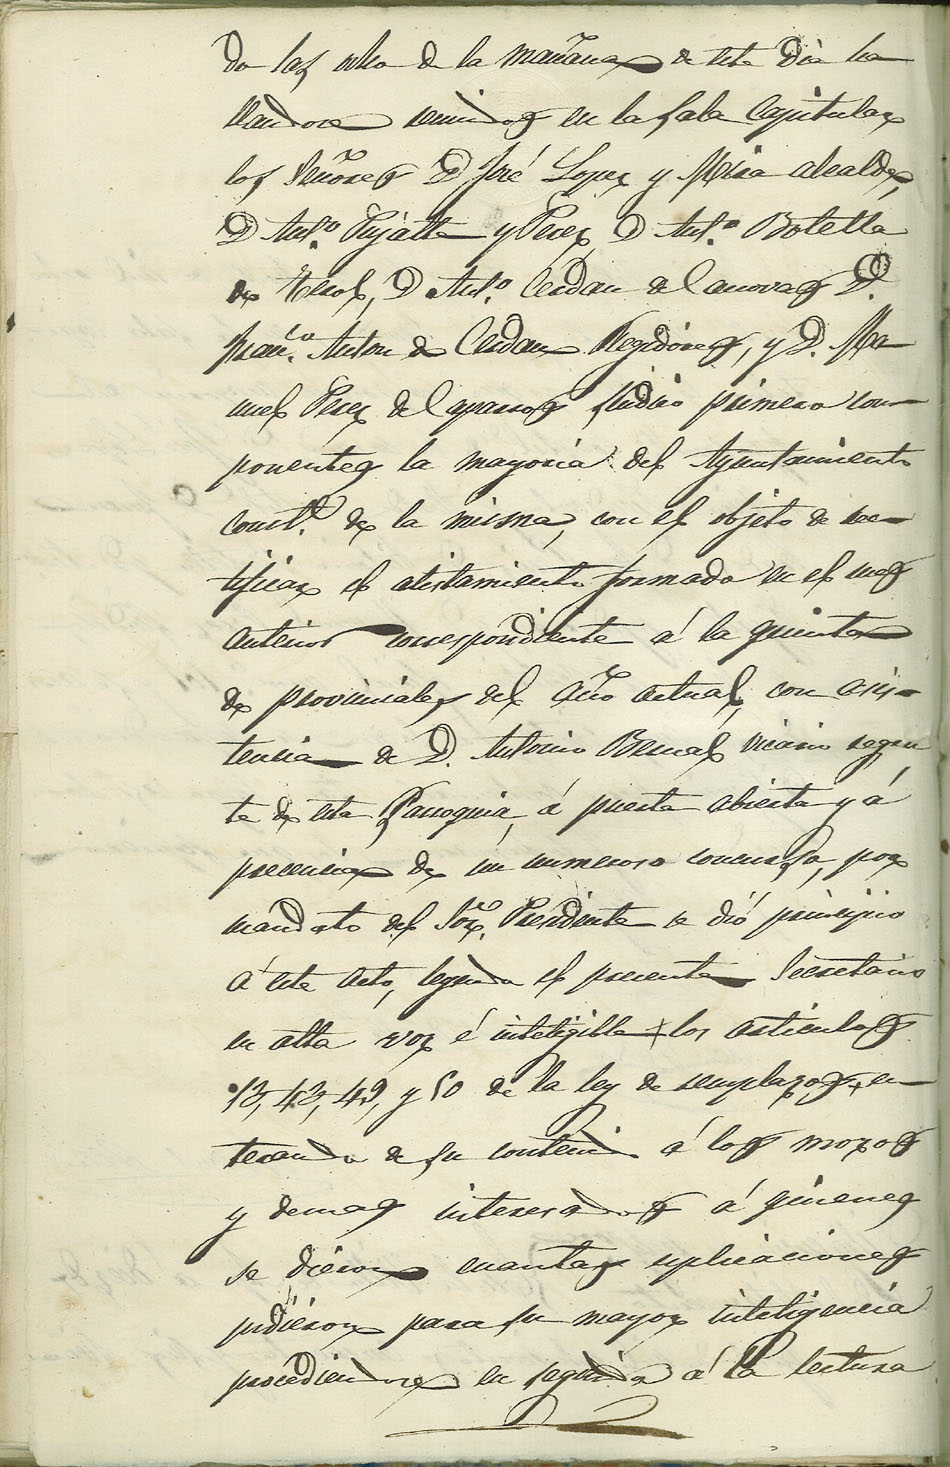 do las ocho de la mañana de este dia ha
llandose reunidos en la sala Capitular
los Señores D José Lopez y Mira alcalde,
D Ant.º Pujalte y Perez D Ant.º Botella
de Terol, D Ant.º Cerdan de Canovas D.
Fran.co Anton de Cerdan Regidores, y D. Ma
nuel Perez de Caparros sindico primero com
ponentes la mayoria del Ayuntamiento
const.l de la misma, con el objeto de rec
tificar el alistamiento formado en el mes
anterior correspondiente á la quinta
de provinciales del año actual, con asis-
tencia de D. Antonio Bernal Vicario regen
te de esta Parroquia, á puerta abierta y á
presencia de un numeroso concurso, por
mandato del Sor. Presidente se dió principio
á este acto, leyendo el presente Secretario
en alta voz é inteligible los articulos
13, 43, 49, y 50 de la ley de remplazos, en
terando de su contenido á los mozos
y demas interesados á quienes
se dieron cuantas esplicaciones
pidieron para su mayor inteligencia
procediendose en seguida á la lectura